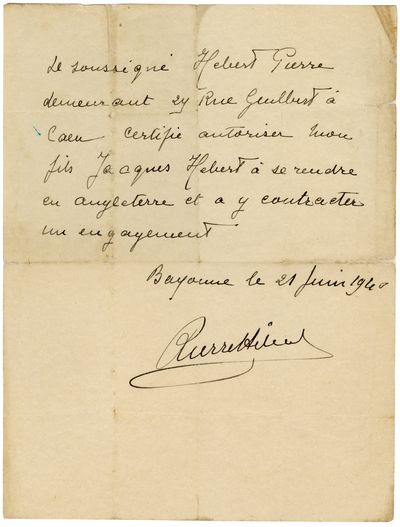 Le soussigné Hebert Pierre
demeurant 27 Rue Guilbert à
Caen certifie autoriser mon
fils Jacques Hebert à se rendre
en angleterre et a y contracter
un engagement
Bayonne le 21 Juin 1940
PierreHébert